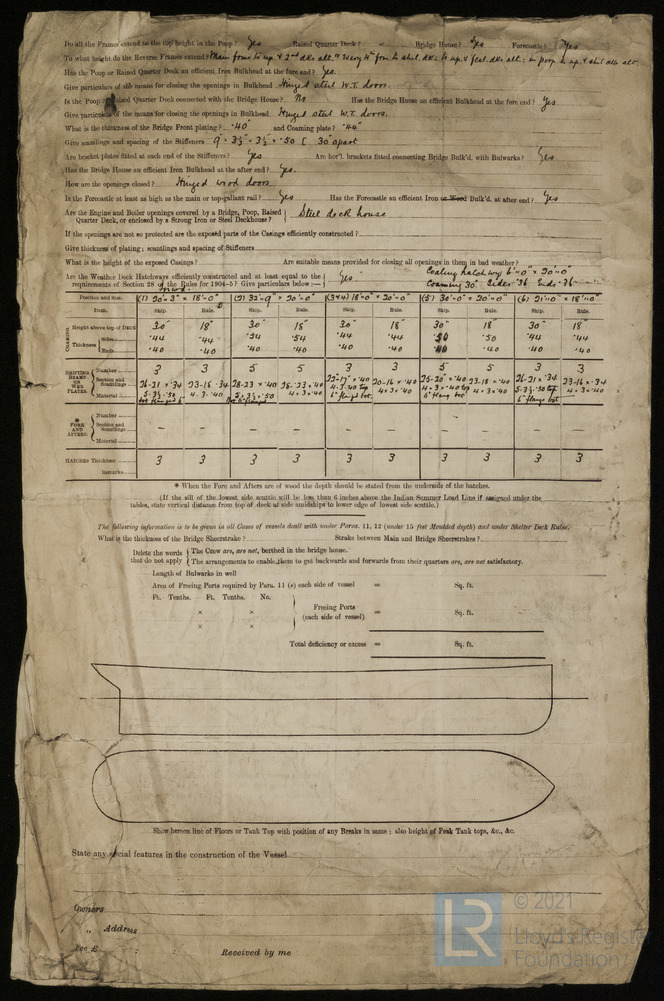 Do all the Frames extend to the top height in the Poop? Yes Raised Quarter Deck? " Bridge House? Yes Forecastle? Yes
To what height do the Reverse Frames extend? Main
Has the Poop or Raised Quarter Deck an efficient Iron Bulkhead at the fore end? Yes.
Give particulars of the means for closing the openings in Bulkhead Hinged steel W.T. doors.
Is the Poop Raised Quarter Deck connected with the Bridge House? No Has the Bridge House an efficient Bulkhead at the fore end? Yes
Give particulars of the means for closing the openings in Bulkhead Hinged steel W.T. doors.
What is the thickness of the Bridge Front plating? .40" and Coaming plate? .44"
Give scantlings and spacing of the Stiffeners 9" × 3½" × 3½" × .50 [ 30" apart
Are bracket plates fitted at each end of the Stiffeners? Yes Are hor'l. brackets fitted connecting Bridge Bulk'd. with Bulwarks? Yes.
Has the Bridge House an efficient Iron Bulkhead at the after end? Yes.
How are the openings closed? Hinged wood doors
Is the Forecastle at least as high as the main or top-gallant rail? Yes Has the Forecastle an efficient Iron or Wood Bulk'd. at after end? Yes
Are the Engine and Boiler openings covered by a Bridge, Poop, Raised Quarter Deck, or enclosed by a Strong Iron or Steel Deckhouse? Steel deck house
If the openings are not so protected are the exposed parts of the Casings efficiently constructed?
Give thickness of plating; scantlings and spacing of Stiffeners
What is the height of the exposed Casings? Are suitable means provided for closing all openings in them in bad weather?
Coaling hatchway 6'-0" × 20'-0"
Are the Weather Deck Hatchways efficiently constructed and at least equal to the requirements of Section 28 of the Rules for 1904-5? Give particulars below:— Yes Coaming 30" Sides .36 Ends .36
Position and Size. (1) 20'-3" × 18'-0" (2) 32'-9" × 20'-0" (3×4) 18'-0" × 20'-0" (5) 30'-0" × 20'-0" (6) 21'-0" × 18'-0"
Item. Ship. Rule. Ship. Rule. Ship. Rule. Ship. Rule. Ship. Rule.
COAMING Height above top of DECK 30" 18" 30" 18" 30" 18" 30" 18" 30" 18"
Thickness Sides .44 .44 .54 .54 .44 .44 .50 .50 .44 .44
Ends .40 .40 .40 .40 .40 .40 .40 .40 .40 .40
SHIFTING BEAMS OR WEB PLATES Number 3 3 5 5 3 3 5 5 3 3
Section and Scantlings 26-21 × .34 23-16 .34 28-23 × .40 28-23 × .40 22-17 × .40 20-16 × .40 25-20 × .40 23-18 × .40 26-21 × .34 23-16 × .34
Material
* FORE AND AFTERS. Number
Section and Scantlings – – – – – – – – – –
Material
HATCHES Thickness 3 3 3 3 3 3 3 3 3 3
Remarks
* When the Fore and Afters are of wood the depth should be stated from the underside of the hatches.
(If the sill of the lowest side scuttle will be less than 6 inches above the Indian Summer Load Line if assigned under the
tables, state vertical distance from top of deck at side amidships to lower edge of lowest side scuttle.)
The following information is to be given in all Cases of vessels dealt with under Paras. 11, 12 (under 15 feet Moulded depth) and under Shelter Deck Rules.
What is the thickness of the Bridge Sheerstrake? Strake between Main and Bridge Sheerstrakes?
Delete the words that do not apply { The Crew are, are not, berthed in the bridge house.
The arrangements to enable them to get backwards and forwards from their quarters are, are not satisfactory.
Length of Bulwarks in well
Area of Freeing Ports required by Para. 11 (e) each side of vessel = Sq. ft.
Ft. Tenths. Ft. Tenths. No.
× × Freeing Ports (each side of vessel) = Sq. ft.
× ×
Total deficiency or excess = Sq. ft.
Show hereon line of Floors or Tank Top with position of any Breaks in same; also height of Peak Tank tops, &c., &c.
State any special features in the construction of the Vessel
Owners
" Address
Fee £ : : Received by me
LR © 2021
Lloyd's Register
Foundation